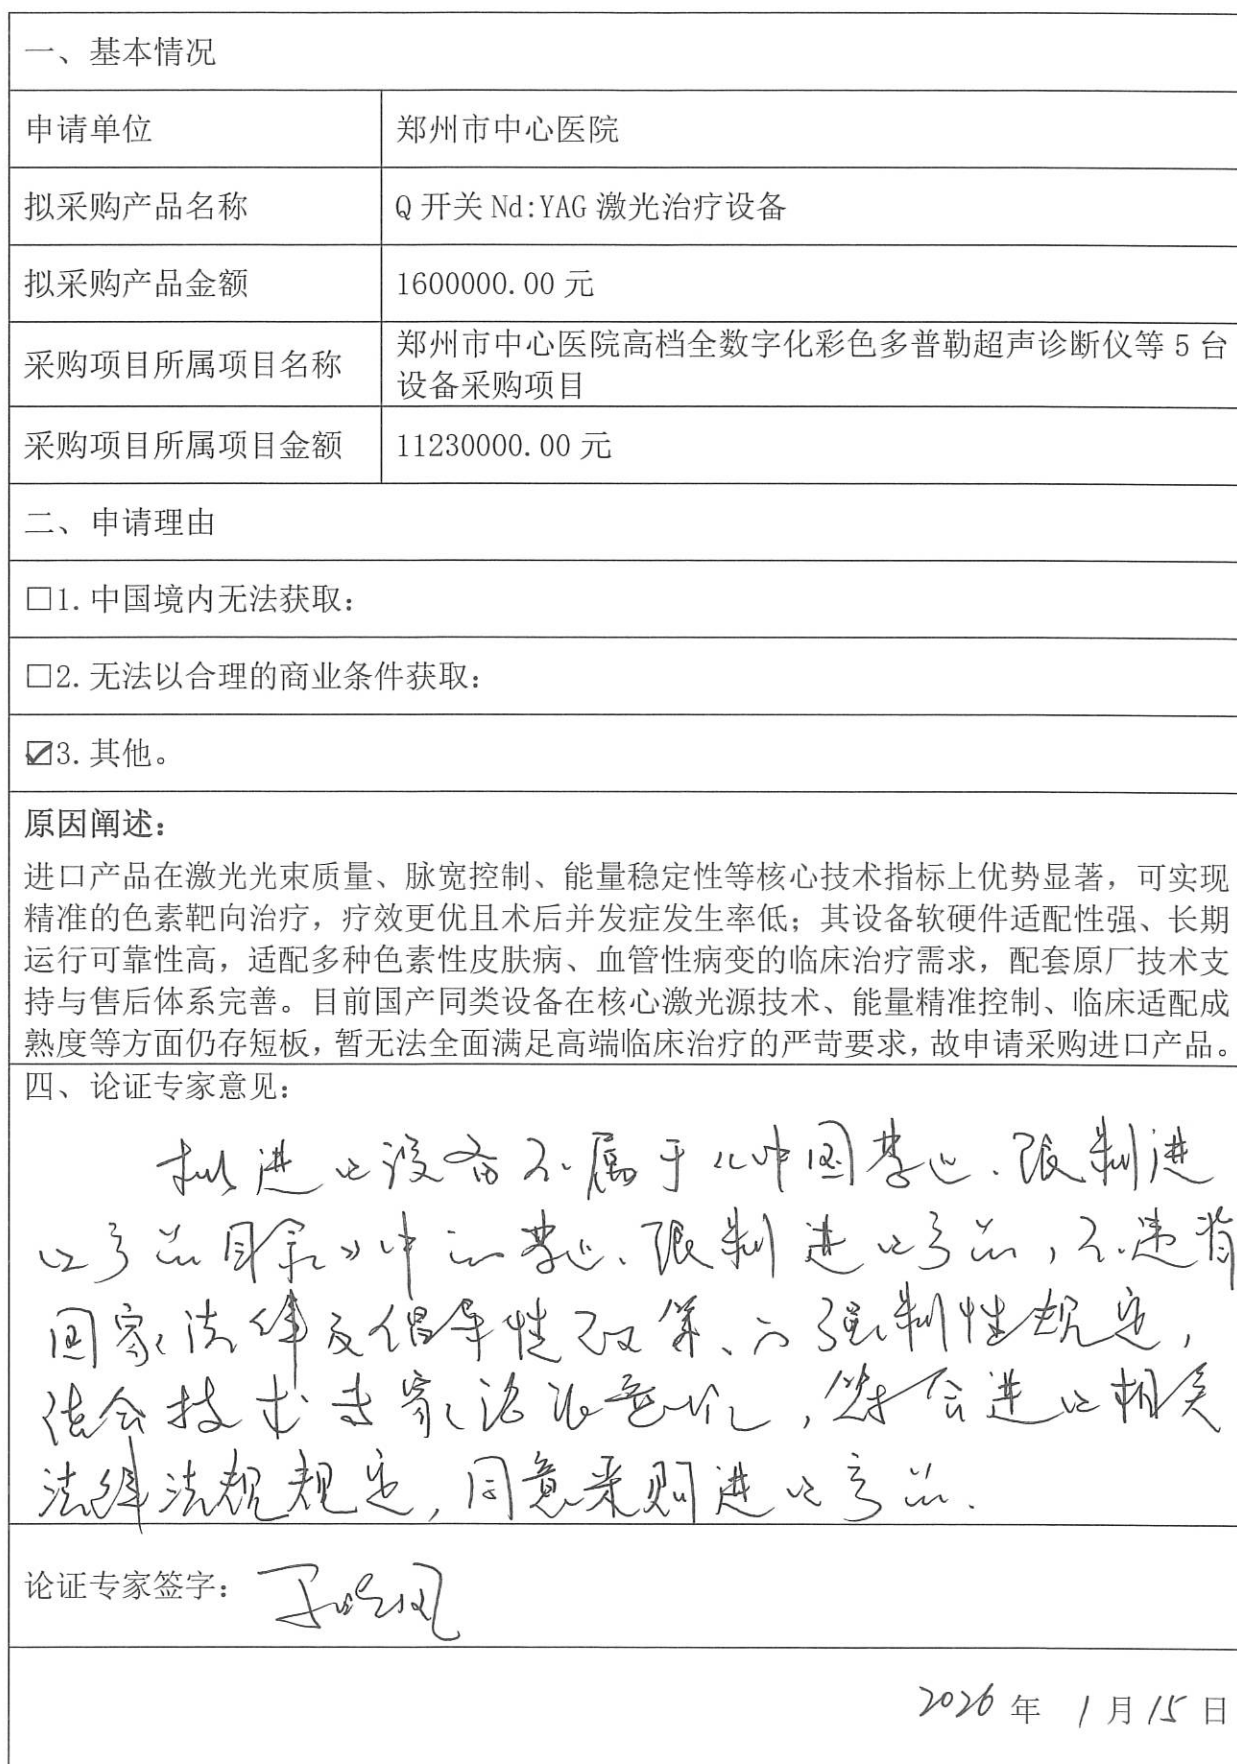 一、基本情况
申请单位
郑州市中心医院
拟采购产品名称
Q开关Nd:YAG激光治疗设备
拟采购产品金额
1600000.00元
采购项目所属项目名称
郑州市中心医院高档全数字化彩色多普勒超声诊断仪等5台
设备采购项目
采购项目所属项目金额
11230000.00元
二、申请理由
□1.中国境内无法获取：
□2.无法以合理的商业条件获取：
☑3.其他。
原因阐述：
进口产品在激光光束质量、脉宽控制、能量稳定性等核心技术指标上优势显著，可实现
精准的色素靶向治疗，疗效更优且术后并发症发生率低；其设备软硬件适配性强、长期
运行可靠性高，适配多种色素性皮肤病、血管性病变的临床治疗需求，配套原厂技术支
持与售后体系完善。目前国产同类设备在核心激光源技术、能量精准控制、临床适配成
熟度等方面仍存短板，暂无法全面满足高端临床治疗的严苛要求，故申请采购进口产品。
四、论证专家意见：
拟进口设备不属于《中国禁止、限制进
口产品目录》中的禁止、限制进口产品，不违背
国家法律及倡导性政策、的强制性规定，
结合技术专家论证意见，符合进口相关
法律法规规定，同意采购进口产品.
论证专家签字：
2026年1月15日